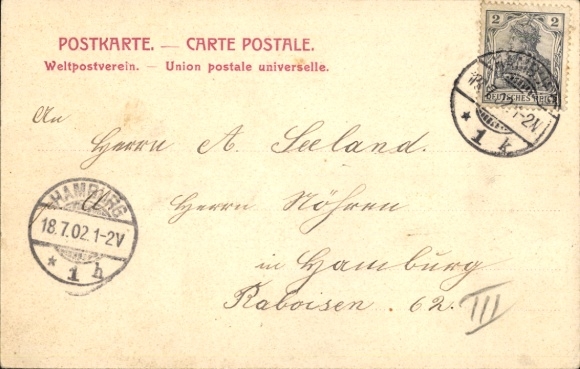 POSTKARTE. — CARTE POSTALE.
Weltpostverein. — Union postale universelle.
2
DEUTSCHES REICH
1-2N
* 1 k
An
Herrn A. Seeland.
HAMBURG
18.7.02.1-2V
* 1 h
Herrn Nöhren
in Hamburg
Raboisen. 62.
III